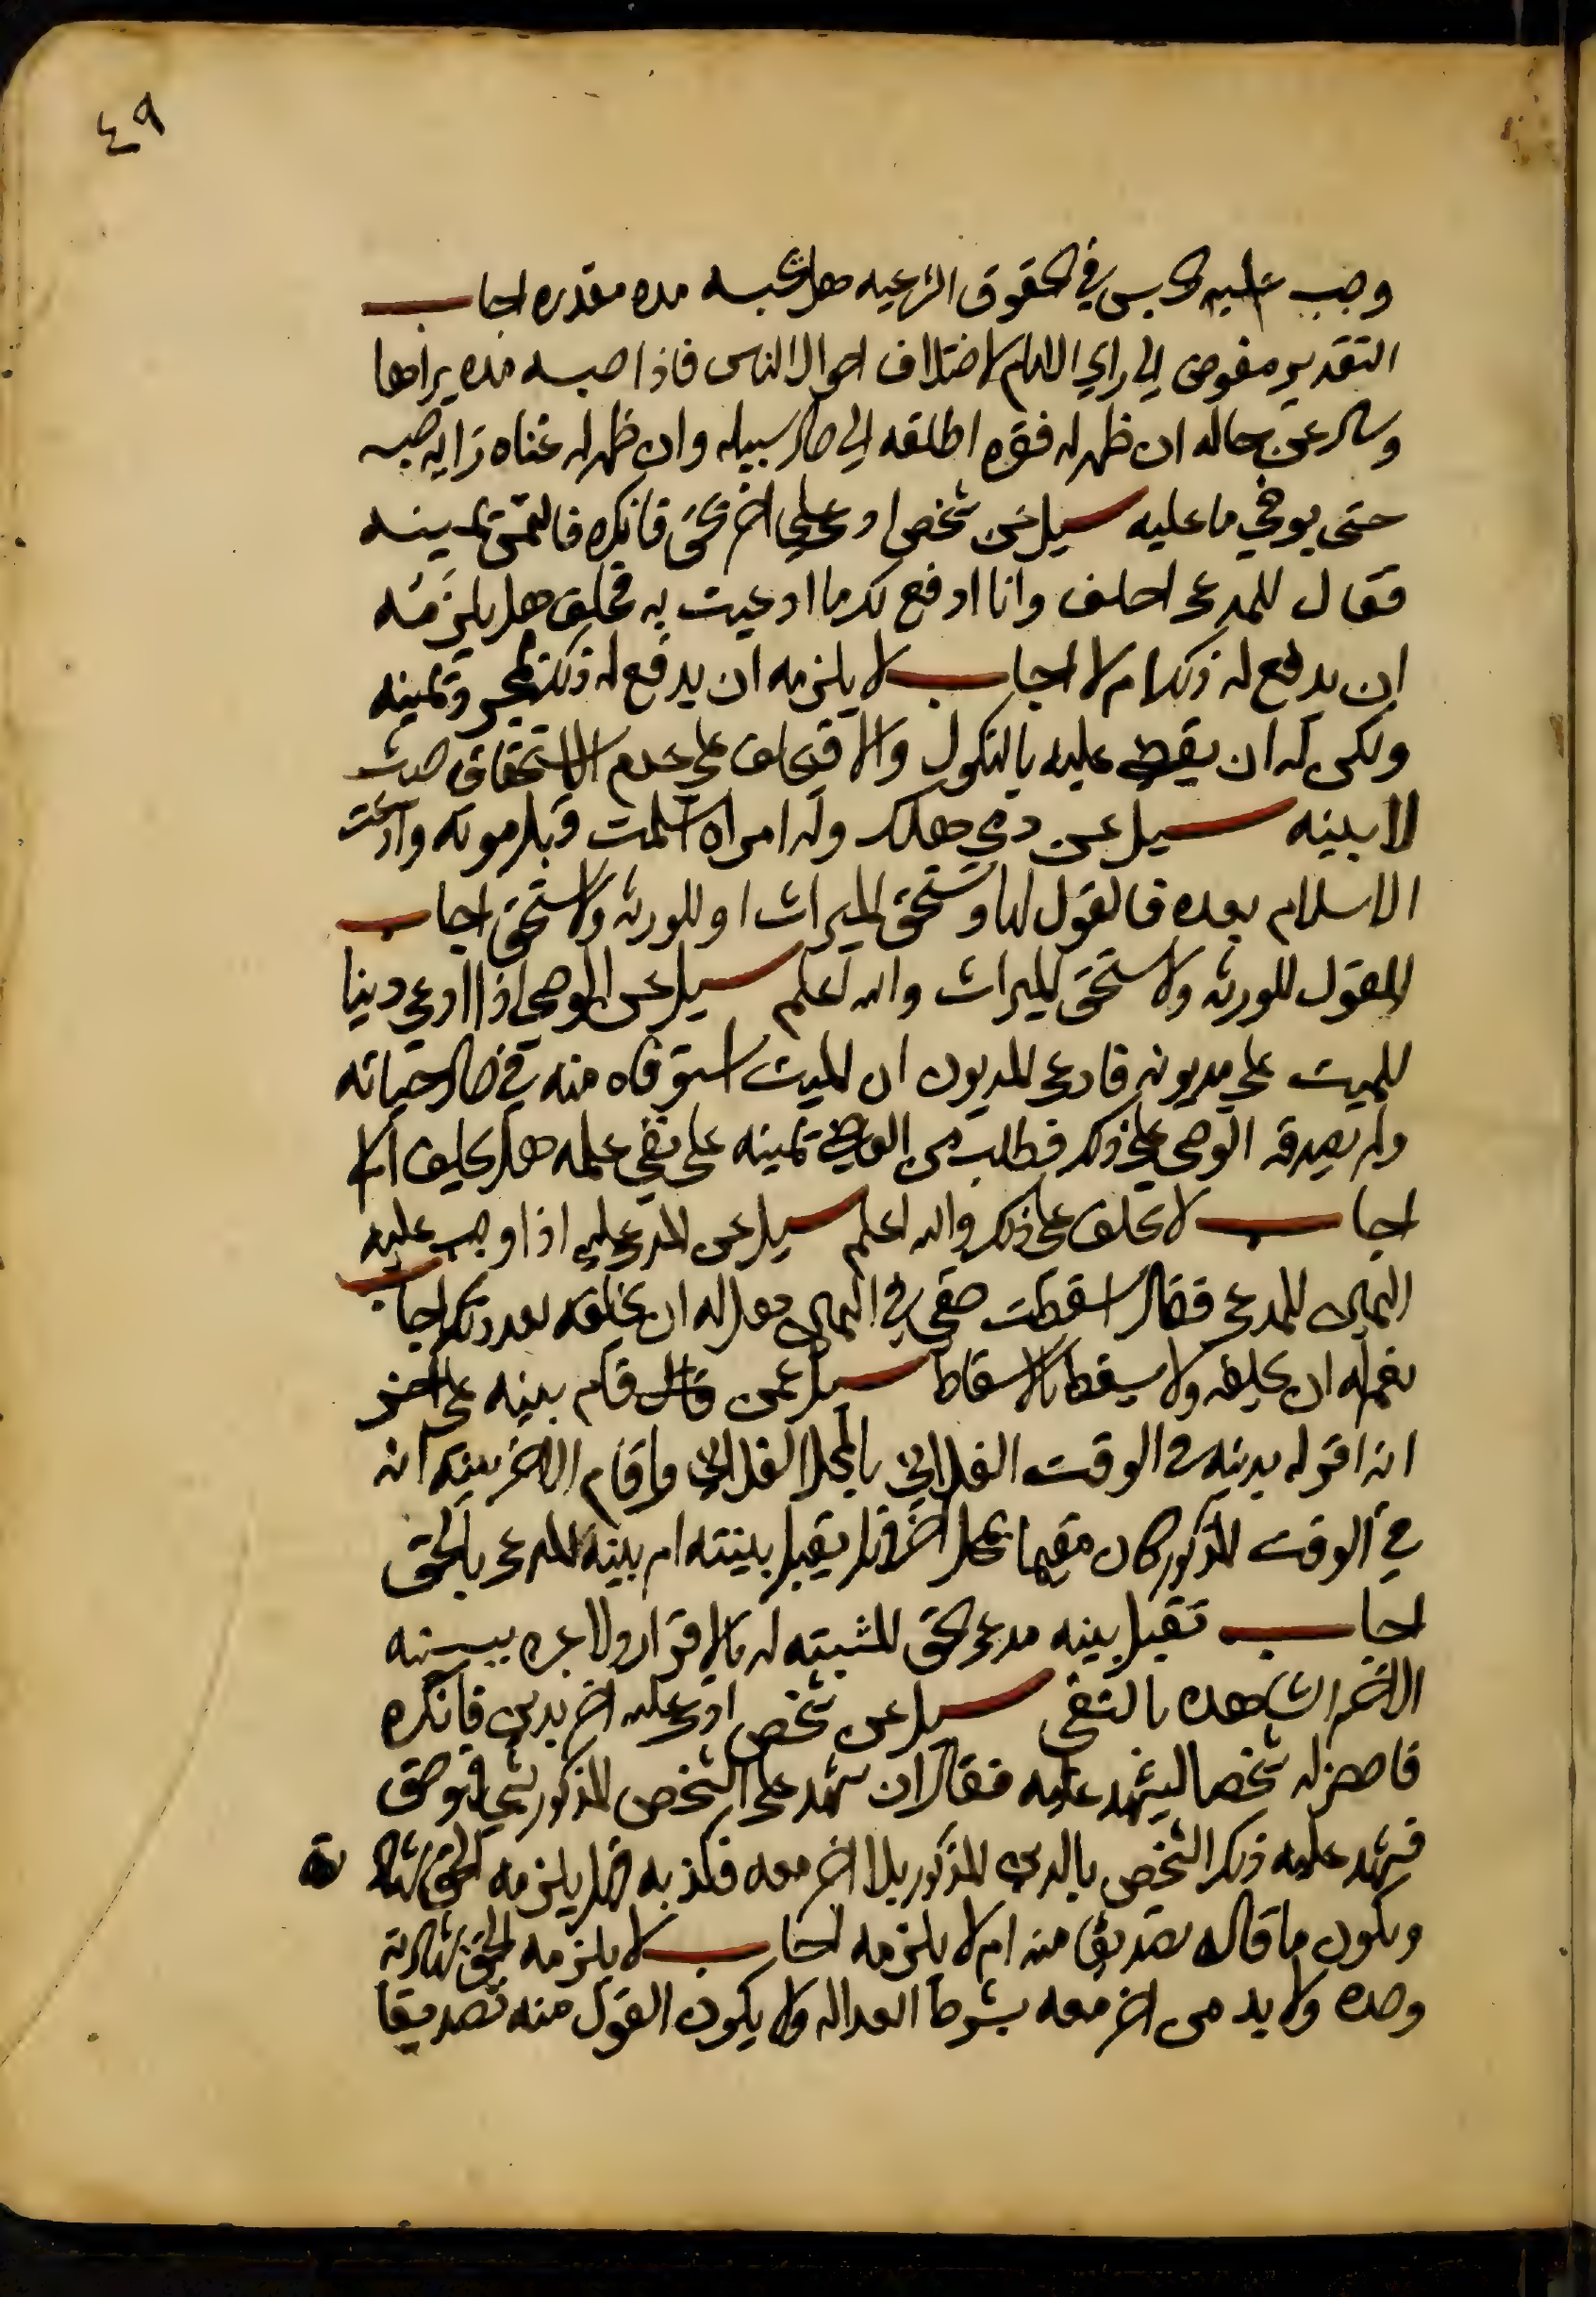 ٤٩
وجب عليه الحبس في الحقوق الشرعيه هل لحبسه مده مقدره اجاب
التقدير مفوض الي راي الامام لاختلاف احوال الناس فاذا حبسه مده يراها
وسال عن حاله ان ظهر له فقره اطلقه الي حال سبيله وان ظهر له غناه زاد حبسه
حتى يوفي ما عليه سيل عن شخص ادعى علي اخر بحق فانكره فالتمس يمينه
فقال للمدعى احلف وانا ادفع لك ما ادعيت به فحلف هل يلزمه
ان يدفع له ذلك ام لا اجاب لا يلزمه ان يدفع له ذلك بمجرد يمينه
ولكن له ان يقضي عليه بالنكول والا فيحلف على عدم الاستحقاق حيث
لا بينه سيل عن ذمي هلك وله امراه اسلمت قبل موته وادعت
الاسلام بعده فالقول لها وتستحق الميراث او للورثه ولا تستحق اجاب
القول للورثه ولا تستحق الميراث والله اعلم سيل عن الوصي اذا ادعي دينا
للميت علي مديونه فادعى المديون ان الميت استوفاه منه في حال حياته
ولم يصدقه الوصي علي ذلك فطلب من القاضي تمينه على نفي علمه هل يحلف ام لا
اجاب لا يحلف على ذلك والله اعلم سيل عن المدعى عليه اذا وجب عليه
اليمين للمدعى فقال اسقطت حقي في اليمين هل له ان يحلفه بعد ذلك اجاب
نعم له ان يحلفه ولا يسقط بالاسقاط سيل عمن قال قام بينه على اخر
انه اقر له بدينه في الوقت الفلاني بالمحل الفلاني واقام الاخر بينه انه
في الوقت المذكور كان مقيما بمحل اخر فهل يقبل بينته ام بينه المدعى بالحق
اجاب تقبل بينه مدعى الحق المثبته له بالاقرار ولا عبره ببينه
الاخر الشاهده بالنفي سيل عن شخص ادعى عليه اخر بدين فانكره
فاحضر له شخصا ليشهد عليه فقال ان شهد على الشخص المذكور بشي فهو حق
فشهد عليه ذلك الشخص بالدين المذكور بلا اخر معه فكذبه فهل يلزمه الحق بشهادته
ويكون ما قاله تصديقا منه ام لا يلزمه اجاب لا يلزمه الحق بشهادته
وحده ولا بد من اخر معه بشرط العداله ولا يكون القول منه تصديقا